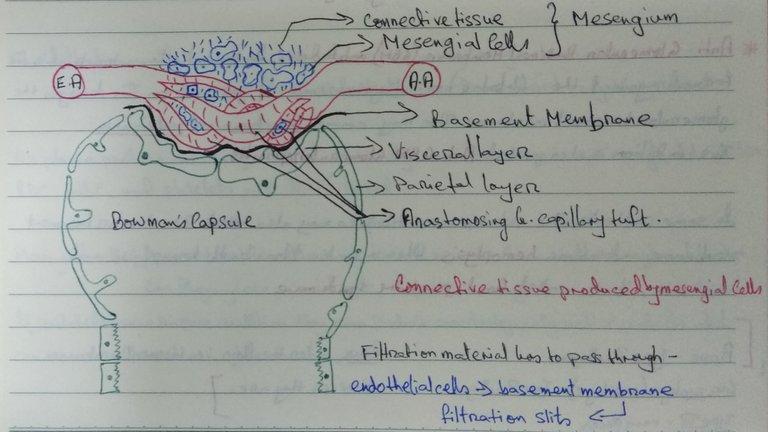 Connective tissue } Mesengium
Mesengial Cells
E.A
A.A
Basement Membrane
Viscerial layer
Parietal layer
Bowman's Capsule
Anastomosing G. capillary tuft.
Connective tissue produced by mesengial Cells
Filtration material has to pass through -
endothelial cells → basement membrane
filtration slits ←